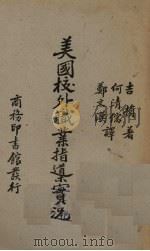 吉爾著
何清儒
鄭文漢譯
美國校外職業指導實況
商務印書館發行